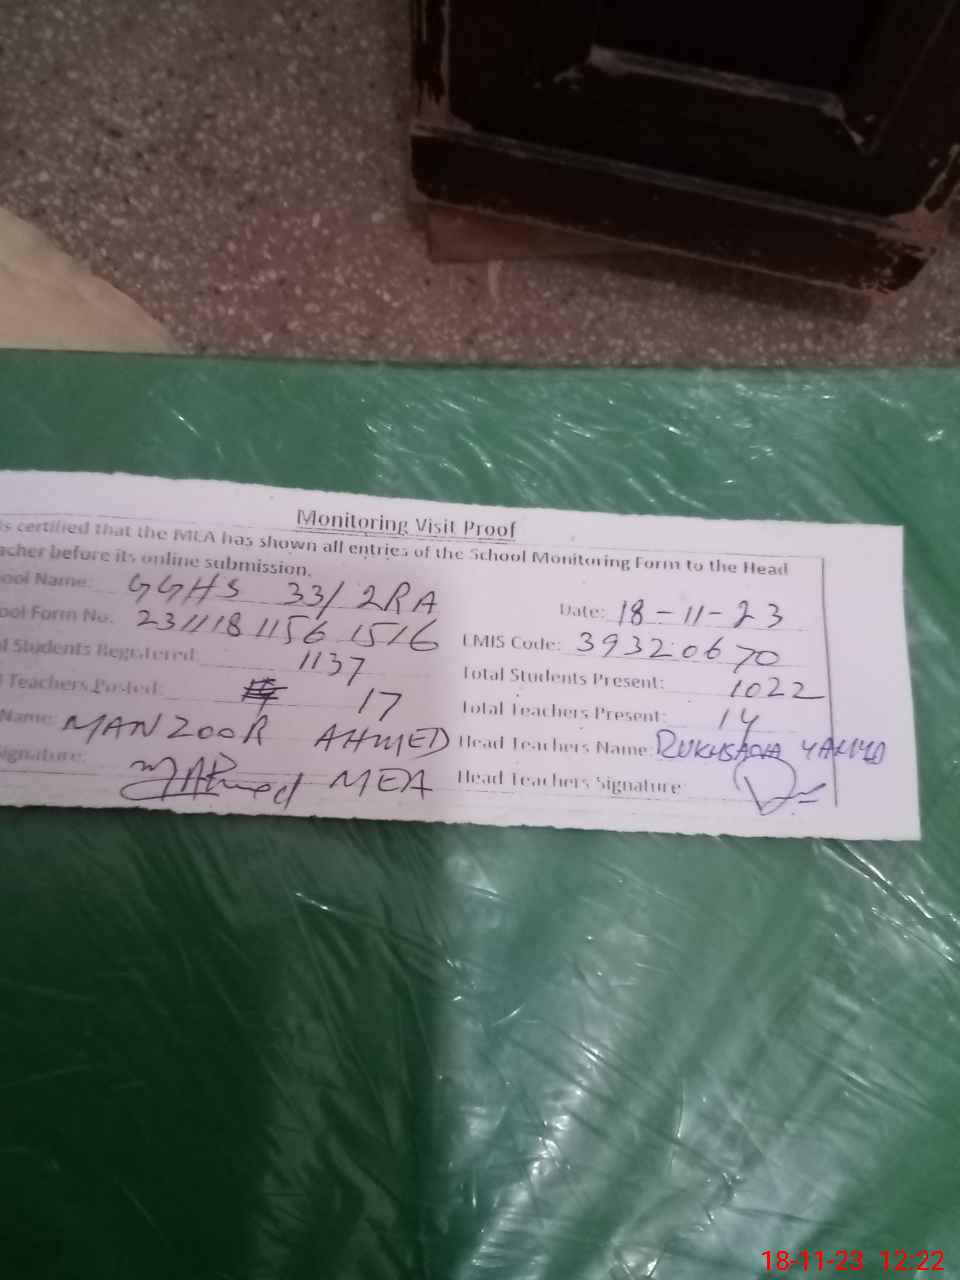 Monitoring Visit Proof
is certified that the MEA has shown all entries of the School Monitoring Form to the Head
acher before its online submission.
ool Name: GGHS 33/2RA Date: 18-11-23
ool Form No. 231118 1156 1516 EMIS Code: 39320670
l Students Registered: 1137 Total Students Present: 1022
l Teachers Posted: 17 Total Teachers Present: 14
Name: MANZOOR AHMED Head Teachers Name: RUKHSANA
ignature: MAhmed MEA Head Teachers Signature
18-11-23 12:22